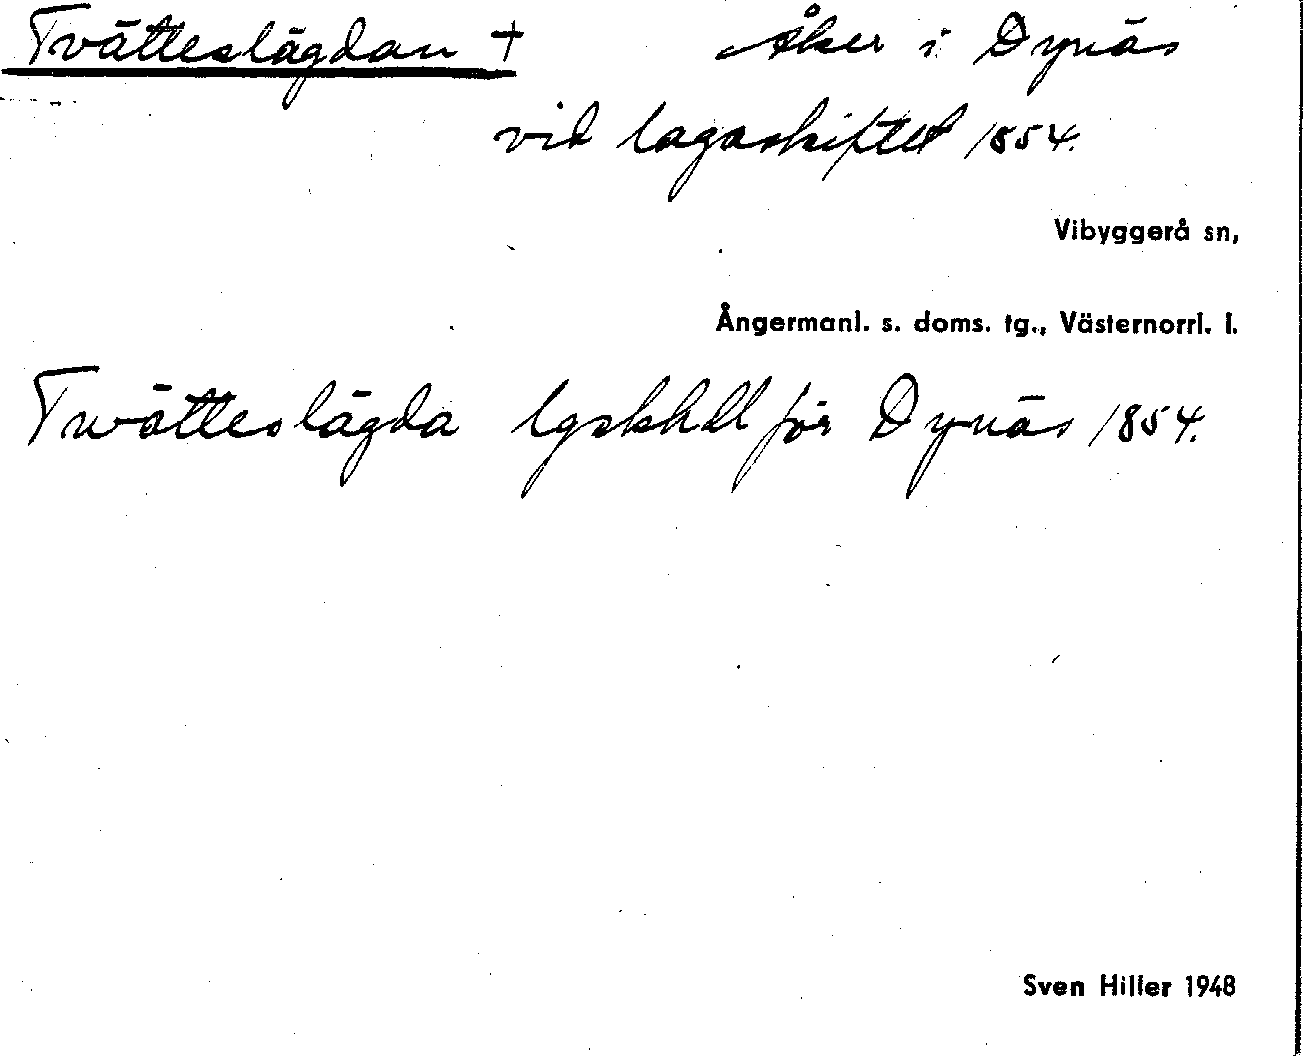 Tvätteslägdan + Åker i Dynäs
vid lagaskiftet 1854.
Vibyggerå sn,
Ångermanl. s. doms. tg., Västernorrl. l.
Twätteslägda lgskhdl för Dynäs 1854.
Sven Hiller 1948